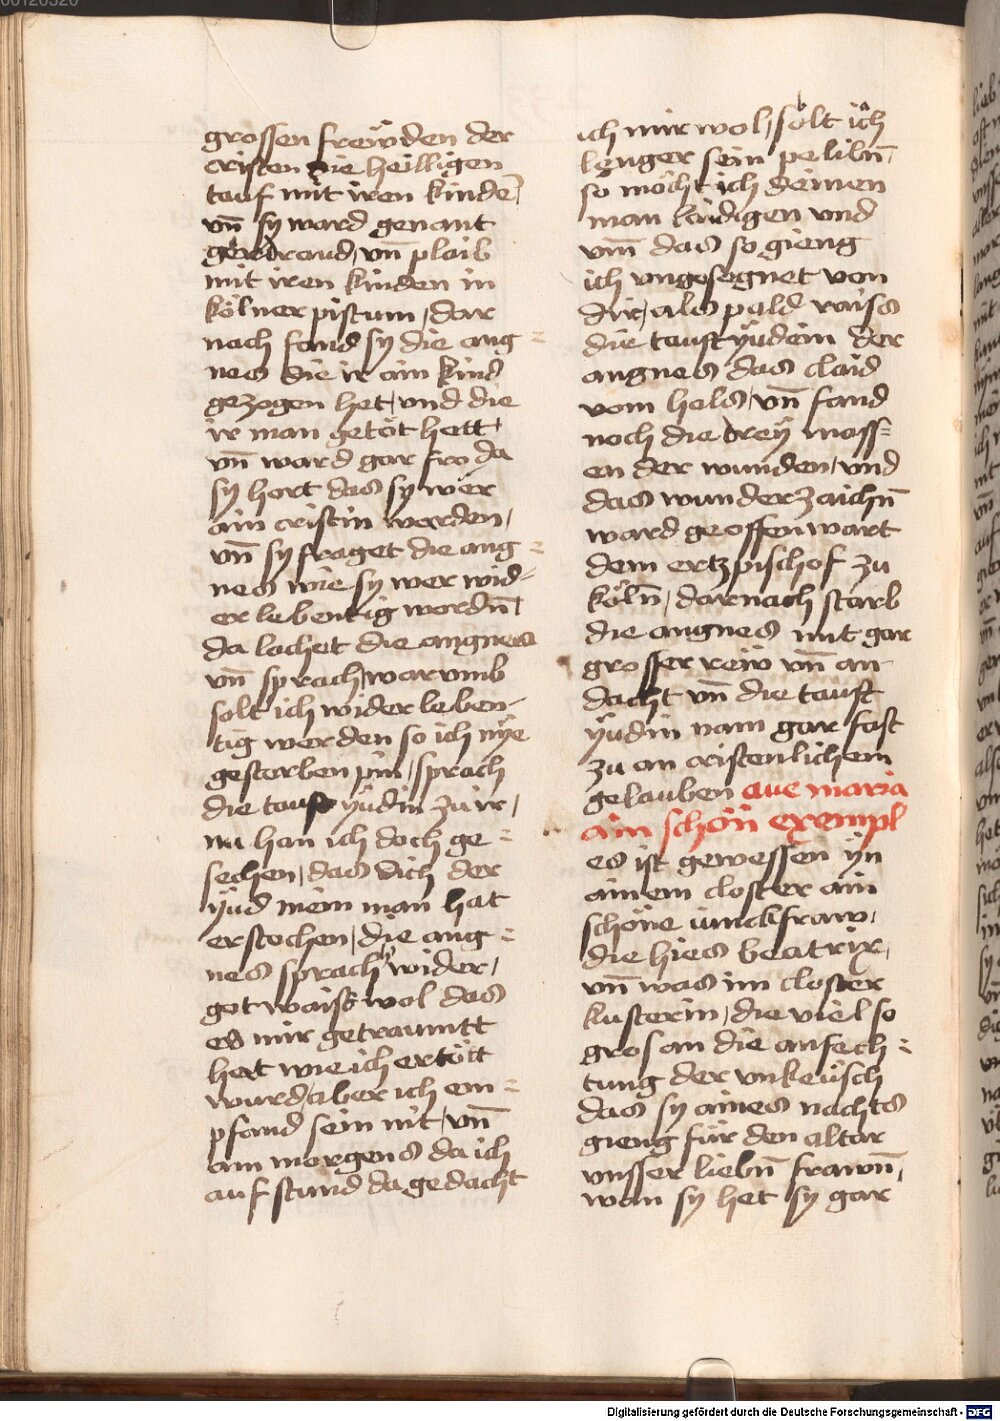 grossen frewden der
cristen die heilligen
tauf mit iren kinden̄
vn̄ sy ward genant
gerdraud, vn̄ plaib
mit iren kinden in
kölner pistum, dar
nach fand sy die ang=
nes die ir ain kind
gezogen het, vnd die
ir man getöt hett,
vn̄ ward gar fro da
sy hort das sy wer
ain cristin worden,
vn̄ sy fraget die ang=
nes wie sy wer wid=
er lebentig wordn̄,
da lachet die angnes
vn̄ sprach, warvmb
solt ich wider leben-
tig werden so ich nye
gestorben pin, sprach
die tauft yüdin zu ir,
nu han ich doch ge=
sechen, das dich der
yüd mein man hat
erstochen, die ang=
nes sprach wider,
got waiss wol das
es mir getraumtt
hett wie ich ertött
wurd, aber ich em=
pfand sein nit, vn̄
am morgens da ich
auf stund da gedacht
ich mir wol, solt ich
lenger sein peliln̄,
so möcht ich deinen
man laidigen vnd
vm̄ das so gieng
ich vngesegnet von
dir, als pald raiss
die tauft yüdein der
angnes das claid
vom hals, vn̄ fand
noch die drey mass=
en der wunden, vnd
das wunderzaichn̄
ward geoffenwart
dem ertzpischof zu
köln̄, darnach starb
die angnes mit gar
grosser rew vn̄ an
dacht vn̄ die tauft
yüdin nam gar fast
zu an cristenlichem
gelauben aue maria
ain schön exempl
es ist gewessen yn
ainem closter ain
schöne iunckfraw,
die hies beatrix,
vn̄ was im closter
kusterin, die viel so
gros an die anfech=
tung der vnkeüsch
das sy aines nachts
gieng für den altar
vnsser liebn̄ frawn̄,
wan sy het sy gar
Digitalisierung gefördert durch die Deutsche Forschungsgemeinschaft - DFG